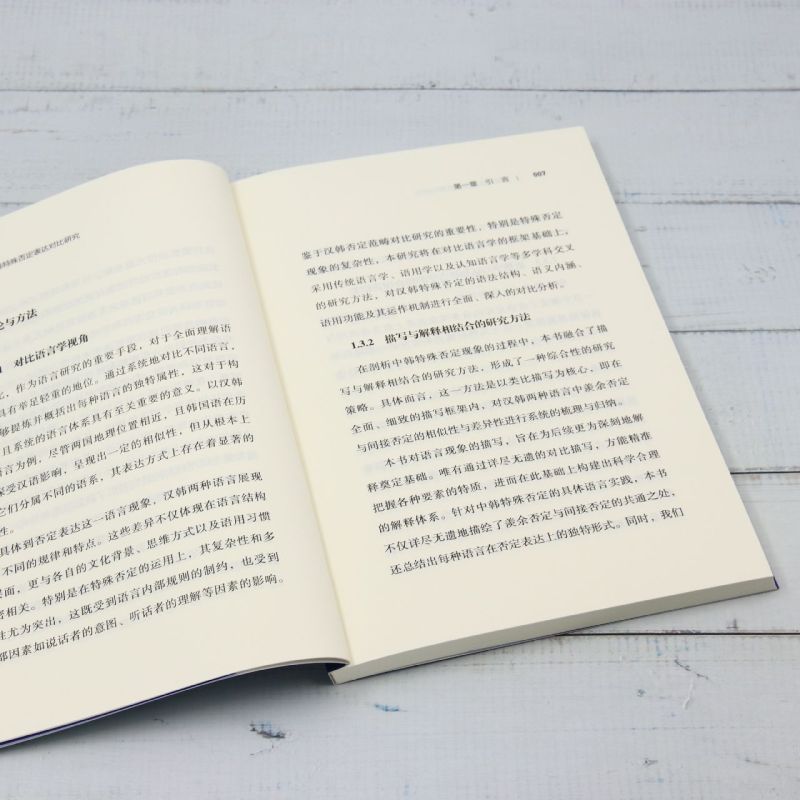 特殊否定表达对比研究
论与方法
对比语言学视角
作为语言研究的重要手段，对于全面理解语
具有举足轻重的地位。通过系统地对比不同语言，
够提炼并概括出每种语言的独特属性，这对于构
且系统的语言体系具有至关重要的意义。以汉韩
言为例，尽管两国地理位置相近，且韩国语在历
深受汉语影响，呈现出一定的相似性，但从根本上
它们分属不同的语系，其表达方式上存在着显著的
性。
具体到否定表达这一语言现象，汉韩两种语言展现
不同的规律和特点。这些差异不仅体现在语言结构
层面，更与各自的文化背景、思维方式以及语用习惯
密相关。特别是在特殊否定的运用上，其复杂性和多
性尤为突出，这既受到语言内部规则的制约，也受到
部因素如说话者的意图、听话者的理解等因素的影响。
第一章 引 言 | 007
鉴于汉韩否定范畴对比研究的重要性，特别是特殊否定
现象的复杂性，本研究将在对比语言学的框架基础上，
采用传统语言学、语用学以及认知语言学等多学科交叉
的研究方法，对汉韩特殊否定的语法结构、语义内涵、
语用功能及其运作机制进行全面、深入的对比分析。
1.3.2 描写与解释相结合的研究方法
在剖析中韩特殊否定现象的过程中，本书融合了描
写与解释相结合的研究方法，形成了一种综合性的研究
策略。具体而言，这一方法是以类比描写为核心，即在
全面、细致的描写框架内，对汉韩两种语言中羡余否定
与间接否定的相似性与差异性进行系统的梳理与归纳。
本书对语言现象的描写，旨在为后续更为深刻地解
释奠定基础。唯有通过详尽无遗的对比描写，方能精准
把握各种要素的特质，进而在此基础上构建出科学合理
的解释体系。针对中韩特殊否定的具体语言实践，本书
不仅详尽无遗地描绘了羡余否定与间接否定的共通之处，
还总结出每种语言在否定表达上的独特形式。同时，我们